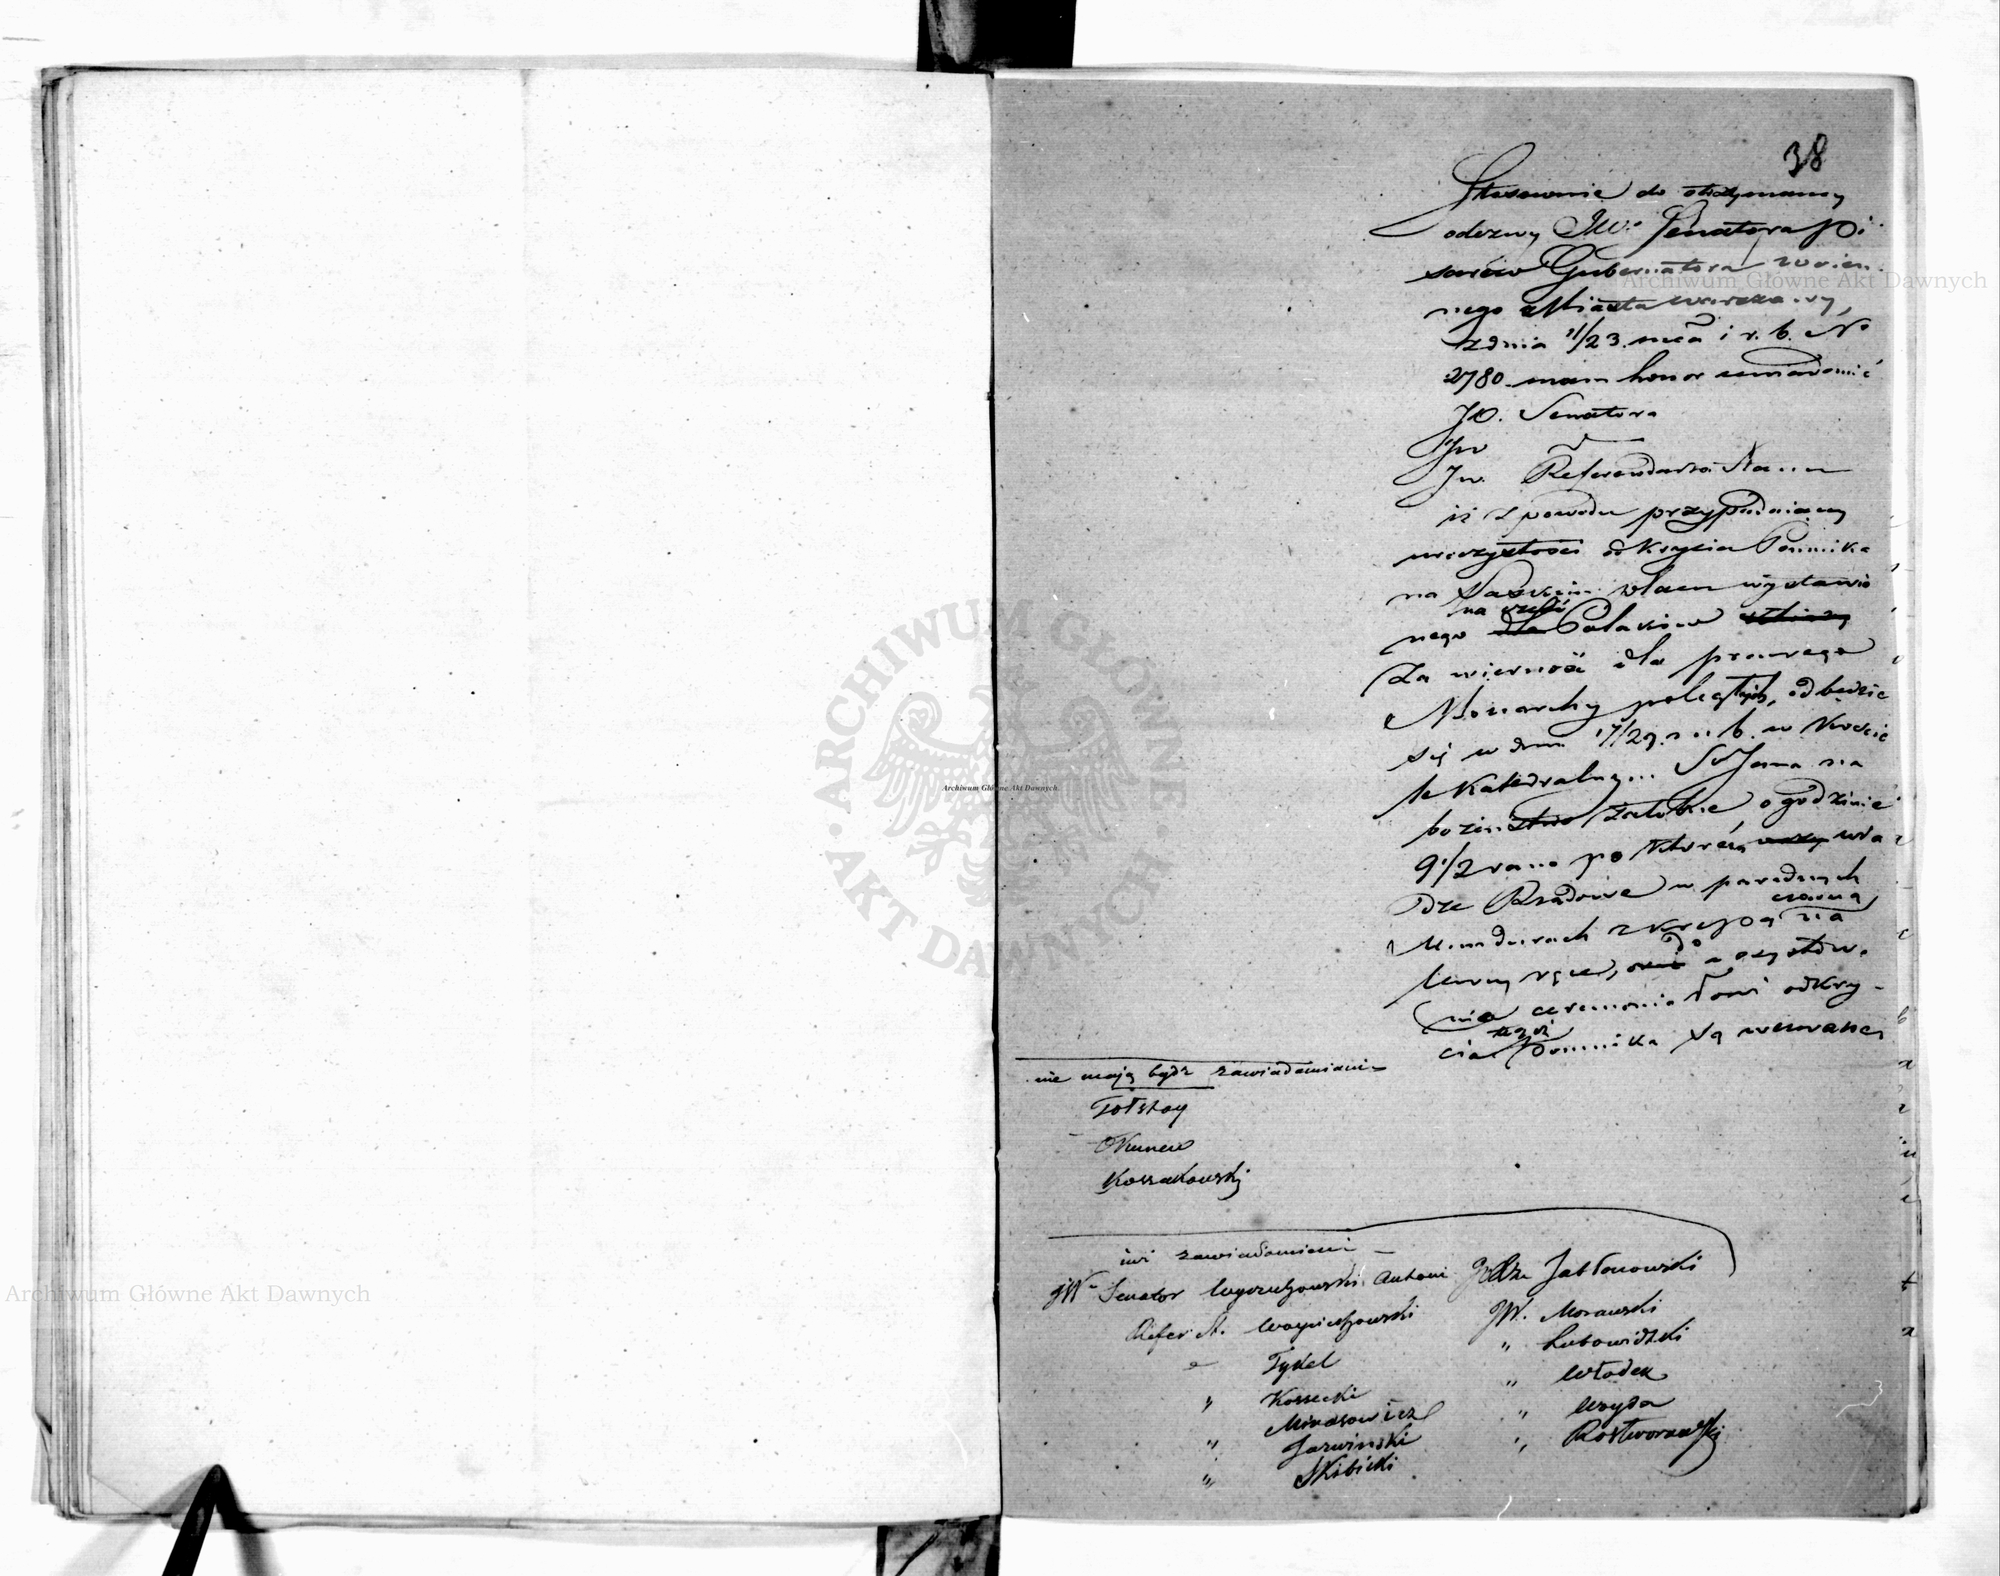 38
Stosownie do otrzymaney
odezwy JW. Senatora Pi
sarew Gubernatora woien
nego Miasta Warszawy,
z dnia 11/23. mca i r. b. No
2780. mam honor uwiadomić
JO. Senatora
JW
JW. Referendarza Stanu
iż z powodu przypadaiącey
uroczystości odkrycia Pomnika
na Saskim placu wystawio
na cześć
nego dla Polaków
za wierność dla prawego
Monarchy poległych, odbędzie
się w dniu 17/29. r. b. w Koście
le Katedralnym Sgo Jana na
bożeństwo żałobne o godzinie
9 1/2 rano po którém wła
dze Rządowe w paradnych
czarną
Mundurach z krepą na
lewey ręce, do uczestow.
nia ceremonii odkry-
cia tegoż Pomnika są wezwane.
nie mają bydz zawiadomieni
Tołstoy
Okunew
Kossakowski
inni zawiadomieni
JW Senator Wyczechowski Antoni
Refer. St. Woyciechowski
" Tykel
" Kossecki
Minasowicz
" Jarwinski
" Skibicki
JO Xże Jabłonowski
JW. Morawski
" Lubowidzki
" Włodek
" Woyda
" Rostworowski
Archiwum Główne Akt Dawnych
Archiwum Główne Akt Dawnych
Archiwum Główne Akt Dawnych
ARCHIWUM GŁÓWNE · AKT DAWNYCH ·